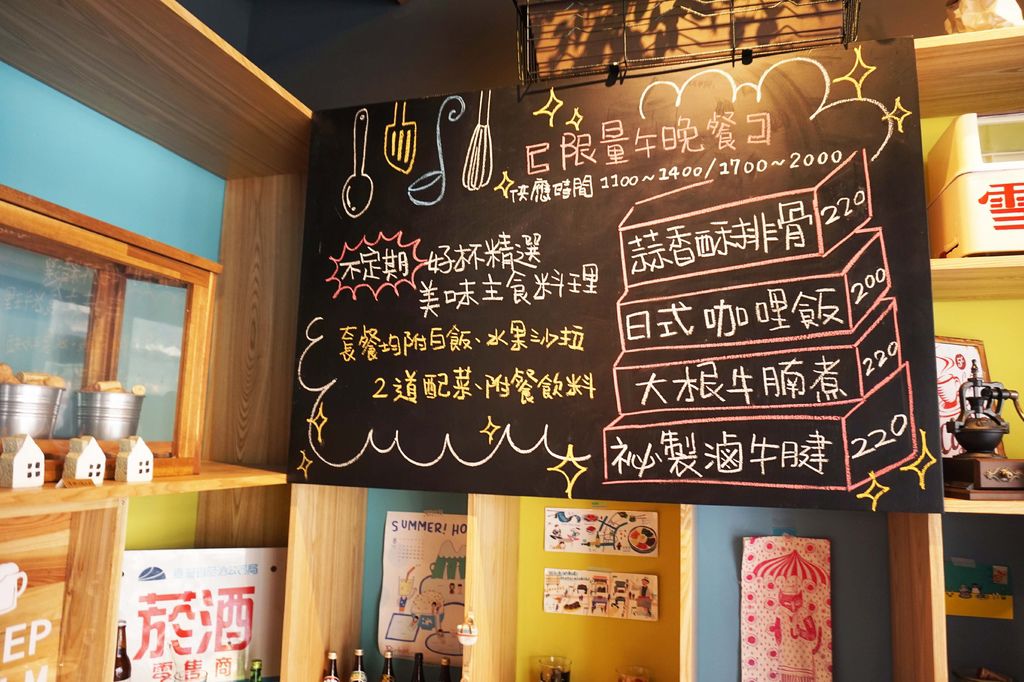 [限量午晚餐]
供應時間 1100~1400/1700~2000
不定期
好杯精選
美味主食料理
套餐均附白飯、水果沙拉
2道配菜、附餐飲料
蒜香酥排骨 220
日式咖哩飯 200
大根牛腩煮 220
祕製滷牛腱 220
雪
菸酒
零售商
SUMMER! HO
EP